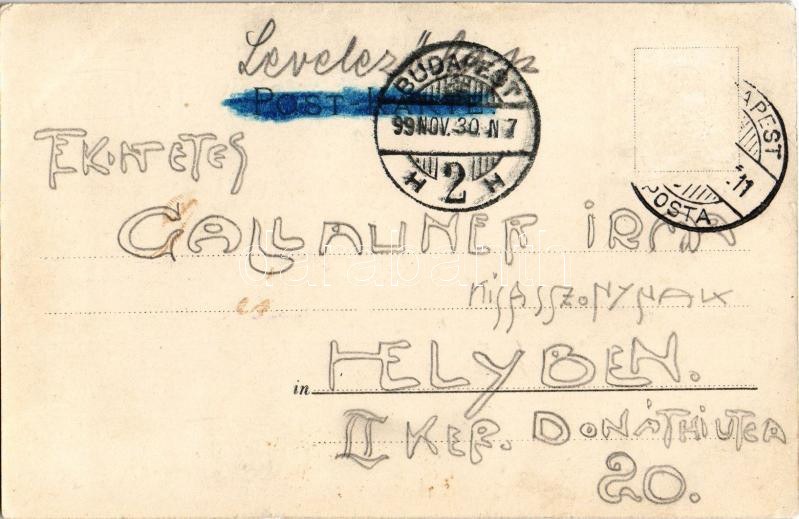 Levelező lap
POST KARTE
BUDAPEST
99 NOV. 30. N 7
H 2 H
APEST
11
POSTA
TEKINTETES
GALLAUNER IRMA
KISASSZONYNAK
in HELYBEN.
II KER. DONÁTHI UTCA
20.
darabanth